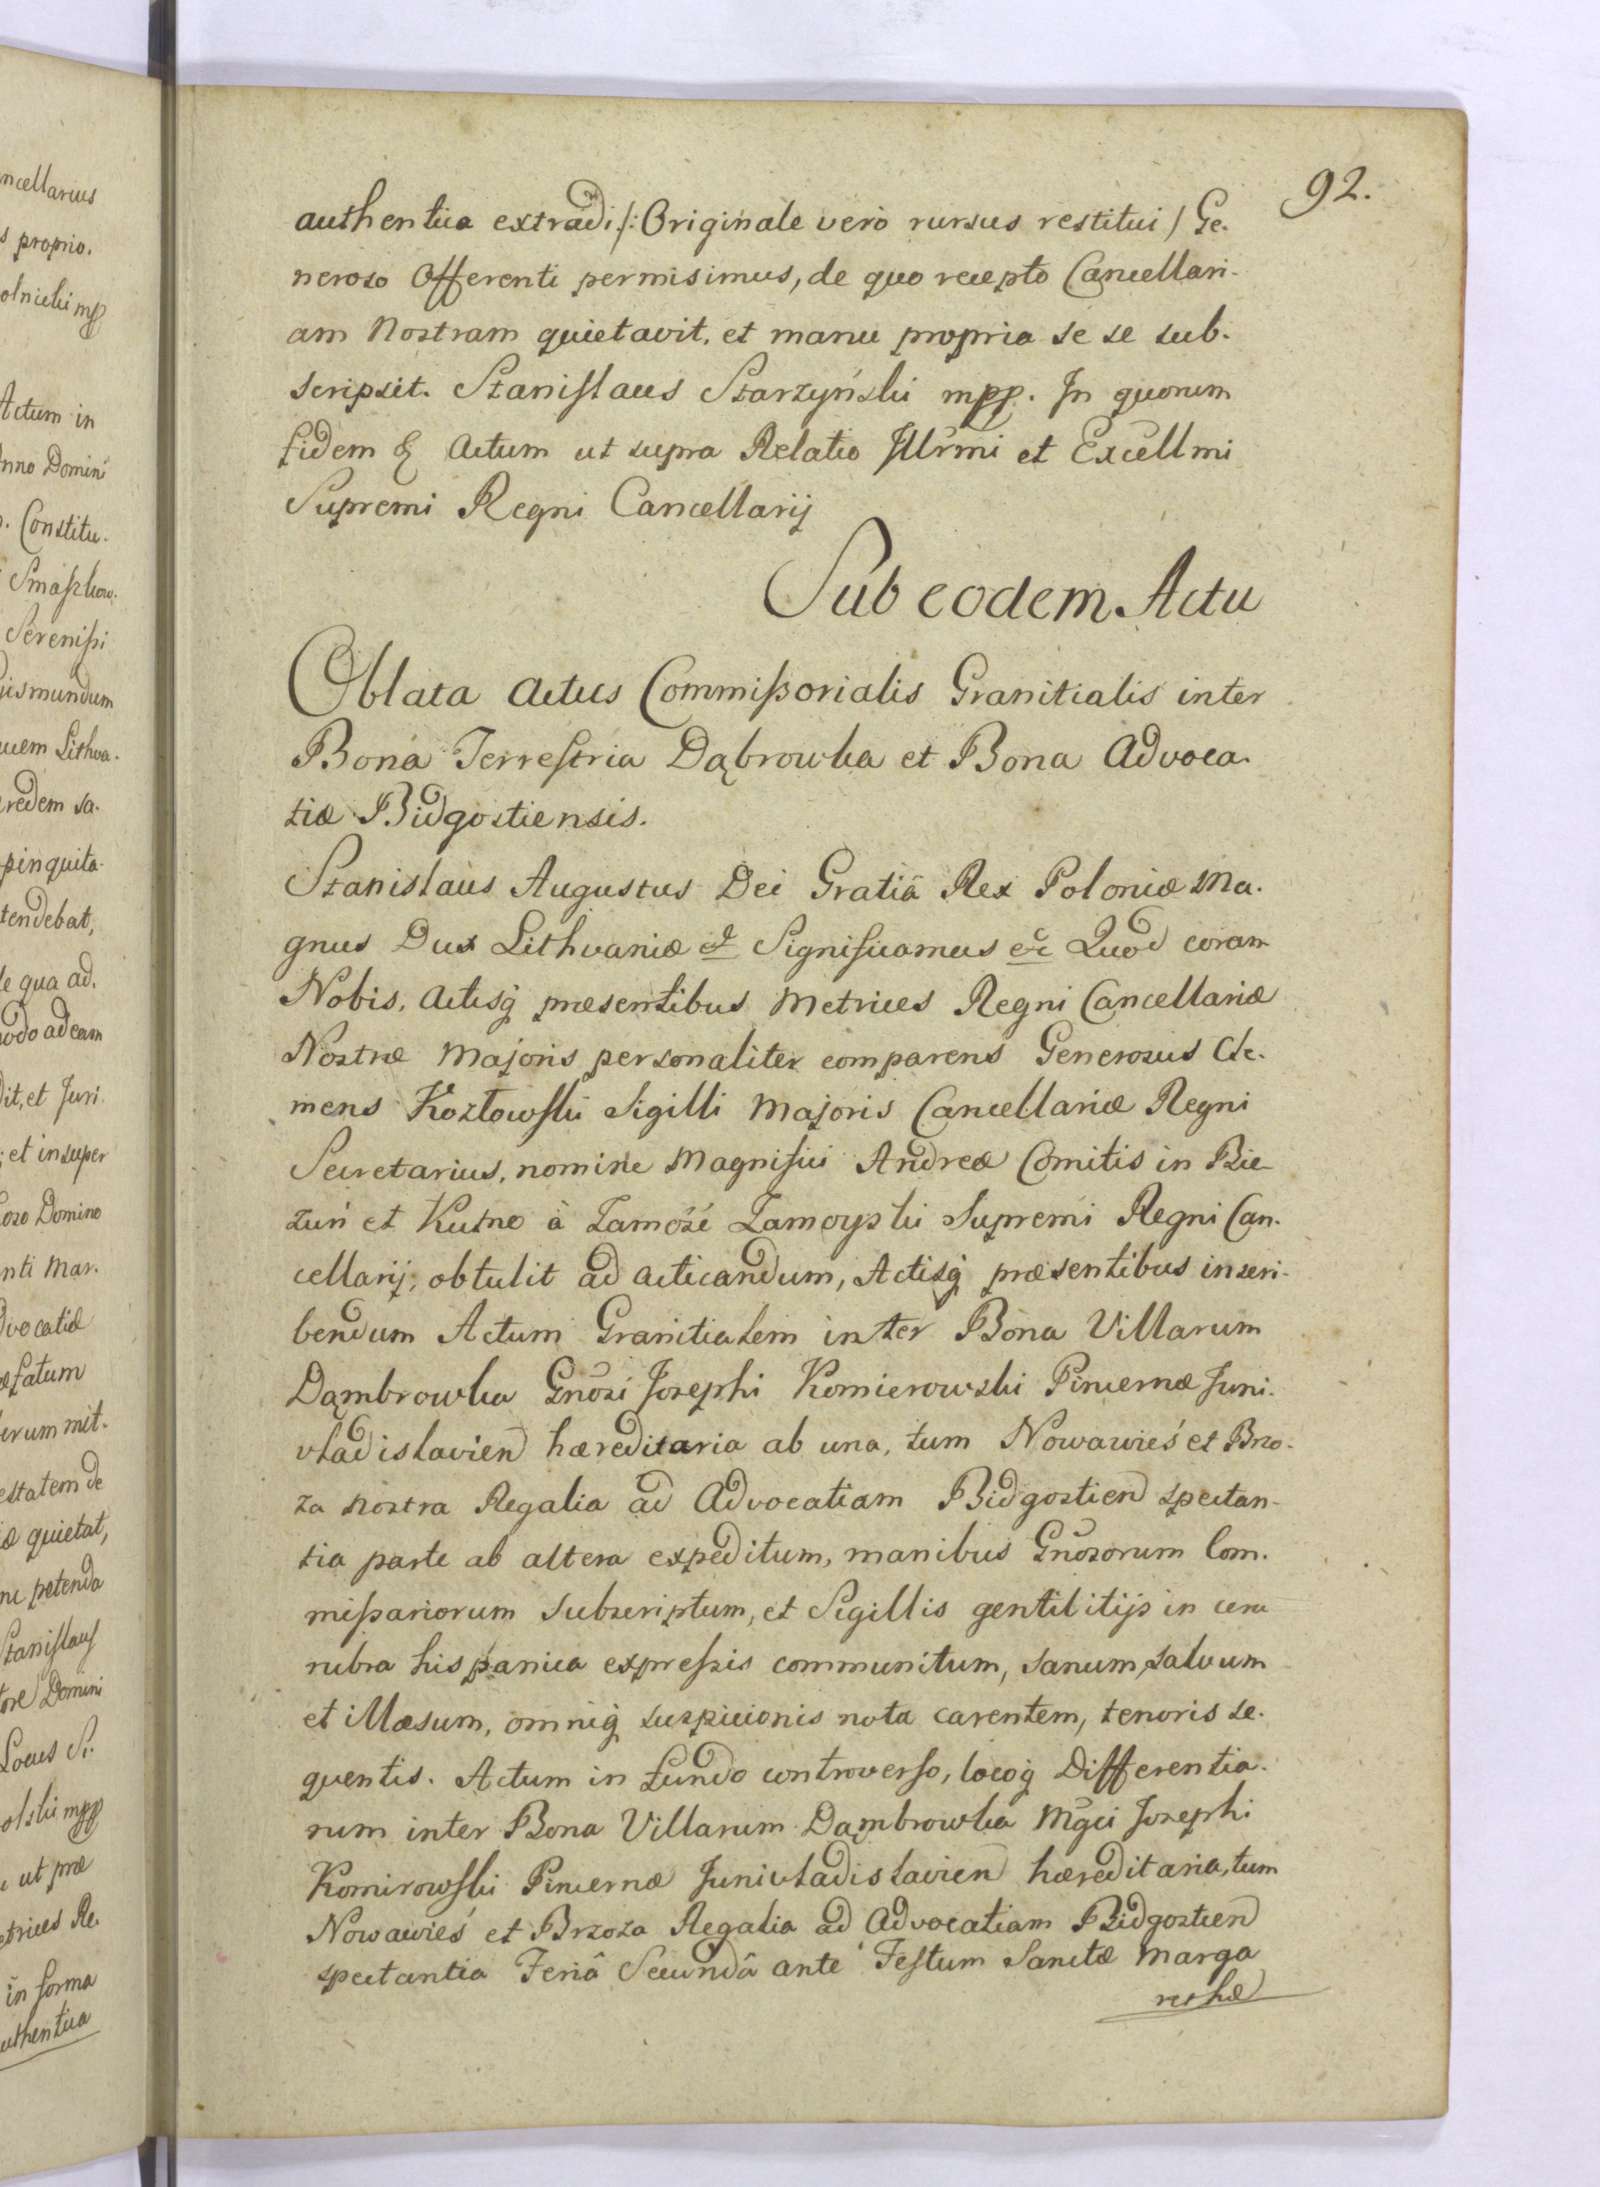 ncellarius
s proprio.
olnicki mp
Actum in
Anno Domini
Constitu-
Smaszkow-
Serenissi
gismundum
uem Lithva-
redem sa-
pinquita-
tendebat,
e qua ad-
modo ad eam
dit, et Juri
et insuper
oso Domino
nti Mar-
dvocatiæ
æfatum
erum mit-
estatem de
iæ quietat,
ne petenda
Stanislaus
ore Domini
Locus Si-
olski mpp
ut præ
etrices Re-
in forma
authentica
92.
authentica extradi /: Originale verò rursus restitui / Ge-
neroso Offerenti permisimus, de quo recepto Cancellari-
am Nostram quietavit, et manu propria se se sub-
scripsit. Stanislaus Starzyński mpp. In quorum
fidem & Actum ut supra Relatio Illrmi et Excellmi
Supremi Regni Cancellarij
Sub eodem Actu
Oblata Actus Commissorialis Granitialis inter
Bona Terrestria Dąbrowka et Bona Advoca-
tiæ Bidgostiensis.
Stanislaus Augustus Dei Gratiâ Rex Poloniæ Ma-
gnus Dux Lithvaniæ & Significamus &c Quod coram
Nobis, Actisq præsentibus Metrices Regni Cancellariæ
Nostræ Majoris personaliter comparens Generosus Cle-
mens Kozłowski Sigilli Majoris Cancellariæ Regni
Secretarius, nomine Magnifici Andreæ Comitis in Bie-
zuń et Kutno à Zamość Zamoyski Supremi Regni Can-
cellarij, obtulit ad acticandum, Actisq præsentibus inscri-
bendum Actum Granitialem inter Bona Villarum
Dąmbrowka Gnosi Josephi Komierowski Pincernæ Juni-
vladislavien hæreditaria ab una, tum Nowawieś et Brzo-
za Nostra Regalia ad Advocatiam Bidgostien spectan-
tia parte ab altera expeditum, manibus Gnosorum Com-
missariorum subscriptum, et Sigillis gentilitijs in cera
rubra hispanica expressis communitum, sanum, salvum
et illæsum, omniq suspicionis nota carentem, tenoris se-
quentis. Actum in fundo controverso, locoq Differentia-
rum inter Bona Villarum Dąmbrowka Mgci Josephi
Komirowski Pincernæ Junivladislavien hæreditaria, tum
Nowawieś et Brzoza Regalia ad Advocatiam Bidgostien
spectantia Feriâ Secundâ ante Festum Sanctæ Marga
rethæ